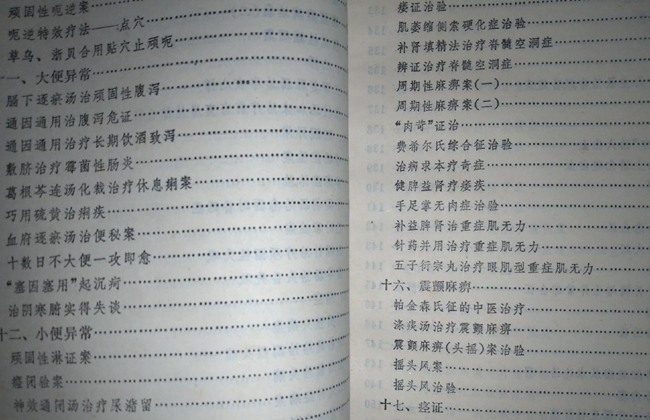 顽固性呃逆案
呃逆特效疗法——点穴
草乌、浙贝合用贴穴止顽呃
一、大便异常
膈下逐瘀汤治顽固性腹泻
通因通用治腹泻危证
通因通用治疗长期饮酒致泻
敷脐治疗霉菌性肠炎
葛根芩连汤化裁治疗休息痢案
巧用硫黄治痢疾
血府逐瘀汤治便秘案
十数日不大便一攻即愈
“塞因塞用”起沉疴
治阴寒脏实得失谈
十二、小便异常
顽固性淋证案
癃闭验案
神效通闭汤治疗尿潴留
痿证治验
肌萎缩侧索硬化症治验
补肾填精法治疗脊髓空洞症
辨证治疗脊髓空洞症
周期性麻痹案(一)
周期性麻痹案(二)
“肉苛”证治
费希尔氏综合征治验
治病求本疗奇症
健脾益肾疗痿疾
手足掌无肉症治验
补益脾肾治重症肌无力
针药并用治疗重症肌无力
五子衍宗丸治疗眼肌型重症肌无力
十六、震颤麻痹
帕金森氏征的中医治疗
涤痰汤治疗震颤麻痹
震颤麻痹(头摇)案治验
摇头风案
摇头风治验
十七、痉证